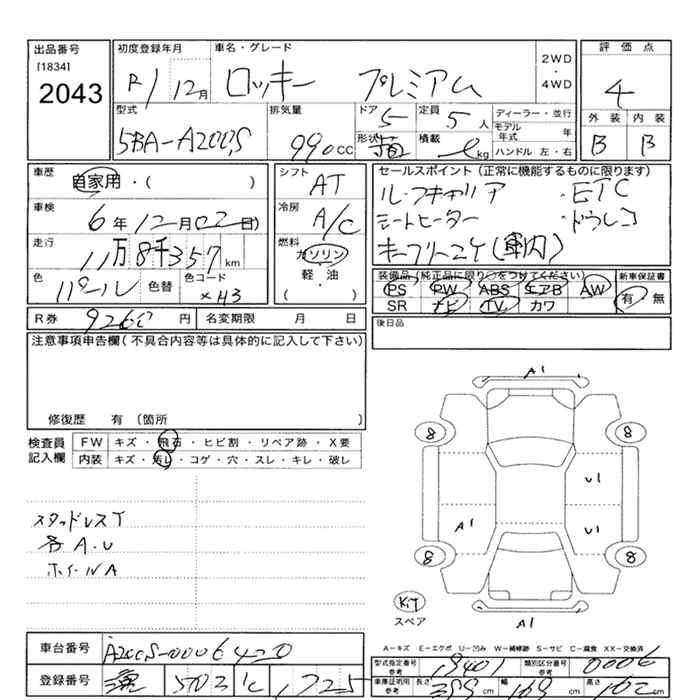 出品番号
[1834]
2043
初度登録年月
R1 12月
車名・グレード
ロッキー プレミアム
2WD
・
4WD
評価点
4
外装 内装
B B
型式
5BA-A200S
排気量
990cc
ドア
5
定員
5人
形状
箱
積載
kg
ディーラー・並行
モデル年式 年
ハンドル 左・右
車歴
自家用・( )
車検
6年12月02日
走行
11万8千357km
色
パール
色替
色コード
シフト
AT
冷房
A/C
燃料
ガソリン
軽・油
( )
セールスポイント(正常に機能するものに限ります)
ルーフキャリア ・ETC
シートヒーター ・ドラレコ
キーフリー2ケ(車内)
装備品(純正品に限り○をつけてください)
PS PW ABS エアB AW
SR ナビ TV カワ
新車保証書
有・無
R券 9260円
名変期限 月 日
後日品
注意事項申告欄(不具合内容等は具体的に記入して下さい)
修復歴 有 〔箇所
検査員記入欄
FW キズ・飛石・ヒビ割・リペア跡・X要
内装 キズ・汚レ・コゲ・穴・スレ・キレ・破レ
スタッドレスT
各A.U
ホイールA
A1
8 8
U1
A1 U1
8 8
Kit
スペア
A1
A-キズ E-エクボ U-凹み W-補修跡 S-サビ C-腐食 XX-交換済
車台番号 A200S-0006420
登録番号 503 1725
型式指定番号 参考 19401
類別区分番号 参考 0006
車庫証明用 参考 長さ 399cm 幅 169cm 高さ 162cm